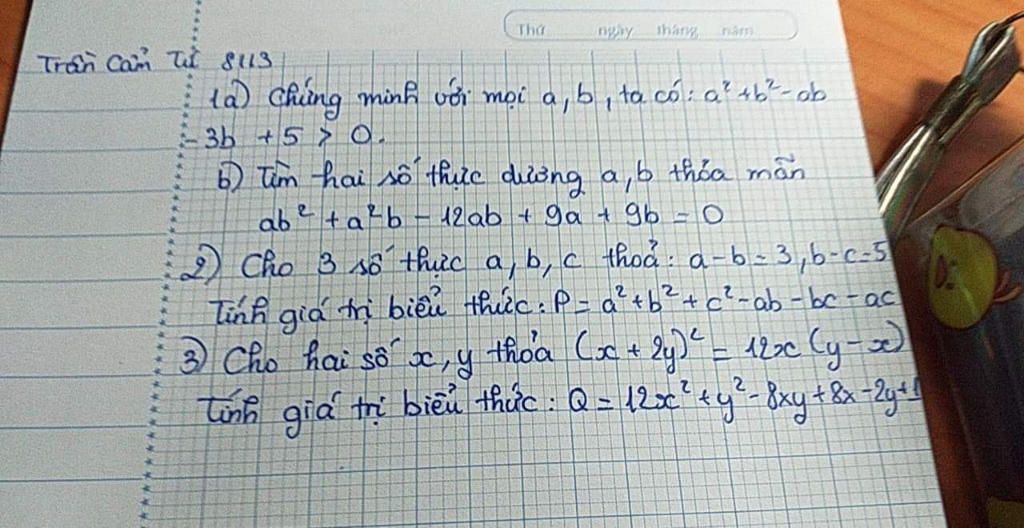 Thứ ngày tháng năm
Trần Cẩm Tú 8113
1a) Chứng minh với mọi a, b, ta có: a² + b² - ab
- 3b + 5 > 0.
b) Tìm hai số thực dương a, b thỏa mãn
ab² + a²b - 12ab + 9a + 9b = 0
2) Cho 3 số thực a, b, c thoả: a - b = 3, b - c = 5
Tính giá trị biểu thức: P = a² + b² + c² - ab - bc - ac
3) Cho hai số x, y thỏa (x + 2y)² = 12x (y - x)
tính giá trị biểu thức: Q = 12x² + y² - 8xy + 8x - 2y + 1